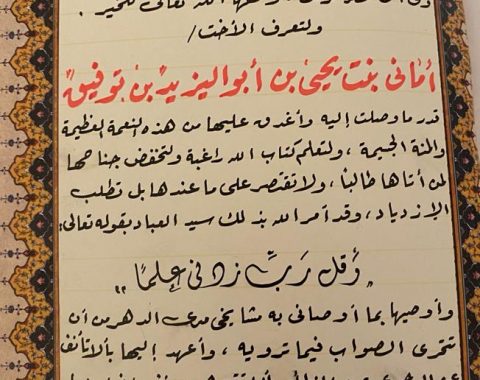 الله تعالى للخير .
ولتعرف الأخت /
أمانى بنت يحيى بن أبو اليزيد بن توفيق
قدر ما وصلت إليه وأغدق عليها من هذه النعمة العظيمة
والمنة الجسيمة ، ولتعلم كتاب الله راغبة ولتخفض جناحها
لمن أتاها طالبًا ، ولا تقتصر على ما عندها بل تطلب
الإزدياد ، وقد أمر الله بذلك سيد العباد بقوله تعالى:
"وَقُل رَبِّ زِدْنِى عِلْمًا"
وأوصيها بما أوصانى به مشايخى مدى الدهر من أن
تتحرى الصواب فيما ترويه ، وأعهد إليها بألا تأنف